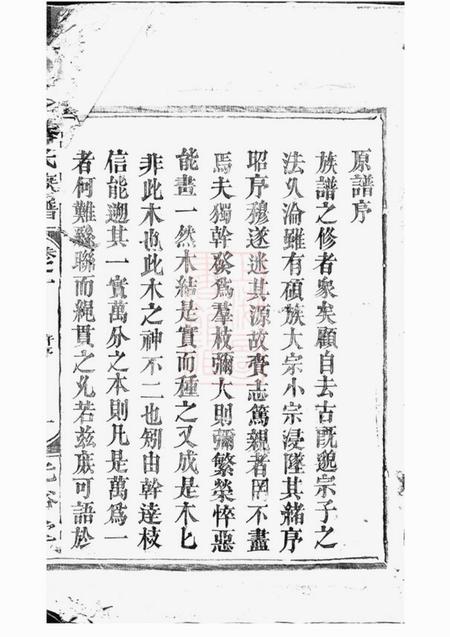 原譜序
族譜之修者衆矣顧自去古旣邈宗子之
法久淪雖有碩族大宗小宗浸墜其緒序
昭序穆遂迷其源故賫志篤親者罔不盡
焉夫獨幹發為羣枝彌大則彌繁榮悴惡
能盡一然木結是實而種之又成是木匕
非此木也此木之神不二也矧由幹逹枝
信能遡其一實萬分之本則凡是萬為一
者何難繇聯而繩貫之凡若茲族可語於
氏族譜